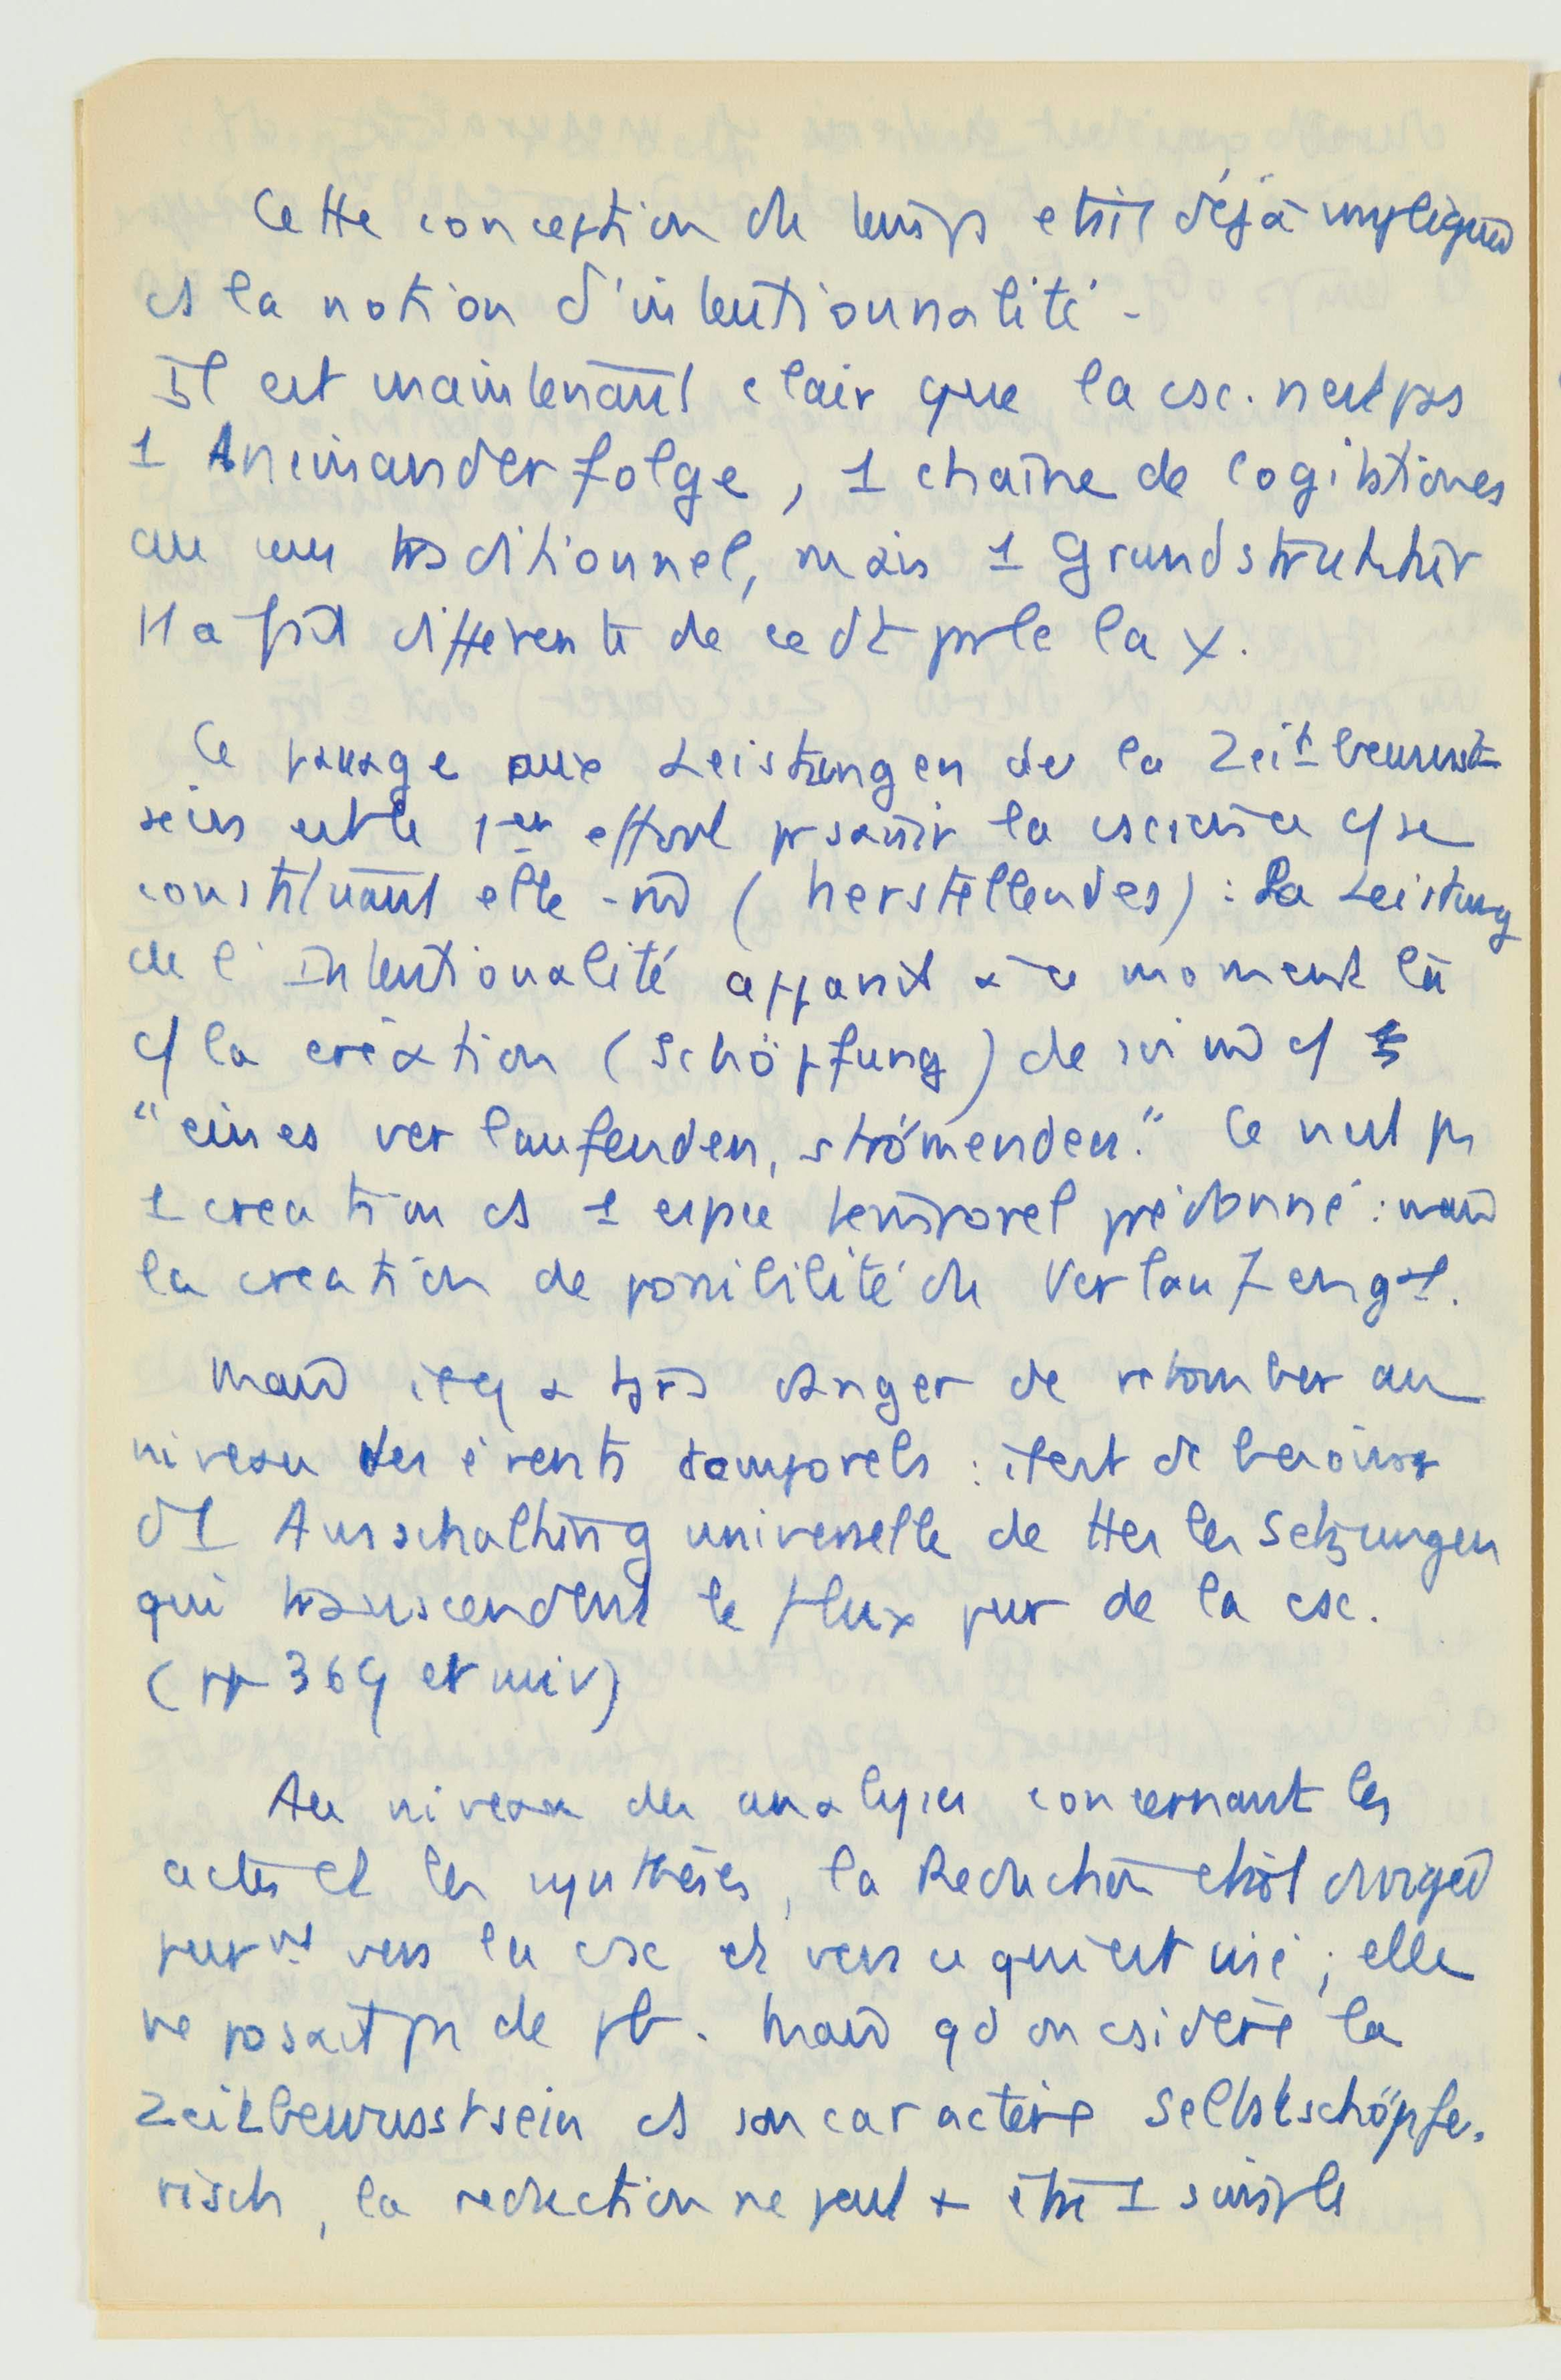 Cette conception du temps etait déjà impliquée
ds la notion d'intentionnalité -
Il est maintenant clair que la csc. n'est pas
1 Aneinanderfolge, 1 chaîne de cogitationes
au sens traditionnel, mais 1 Grundstruktur
tt a fait differente de ce dt parle la
Ce passage aux Leistungen de la Zeitbewusst
sein est le 1er effort pr saisir la cscience c/ se
constituant elle-m̄ (herstellendes) : La Leistung
de l'Intentionalité apparait à ce moment là
c/ la création (Schöpfung) de soi m̄ c/
"eines verlaufenden, strömenden." Ce n'est pas
1 creation ds 1 espce temporel prédonné : mais
la creation de possibilité du Verlauf en gal.
Mais il y a tjrs danger de retomber au
niveau des évents temporels : il est de besoin
d'1 Ausschaltung universelle de ttes les Setzungen
qui transcendent le flux pur de la csc.
(pp 369 et suiv)
Au niveau des analyses concernant les
actes et les synthèses, la Reduction était dirigée
vers la csc et vers ce qui est visé ; elle
ne posait pas de pb. Mais qd on csidère la
Zeitbewusstsein ds son caractère Selbstschöpfe-
risch, la reduction ne peut + être 1 simple